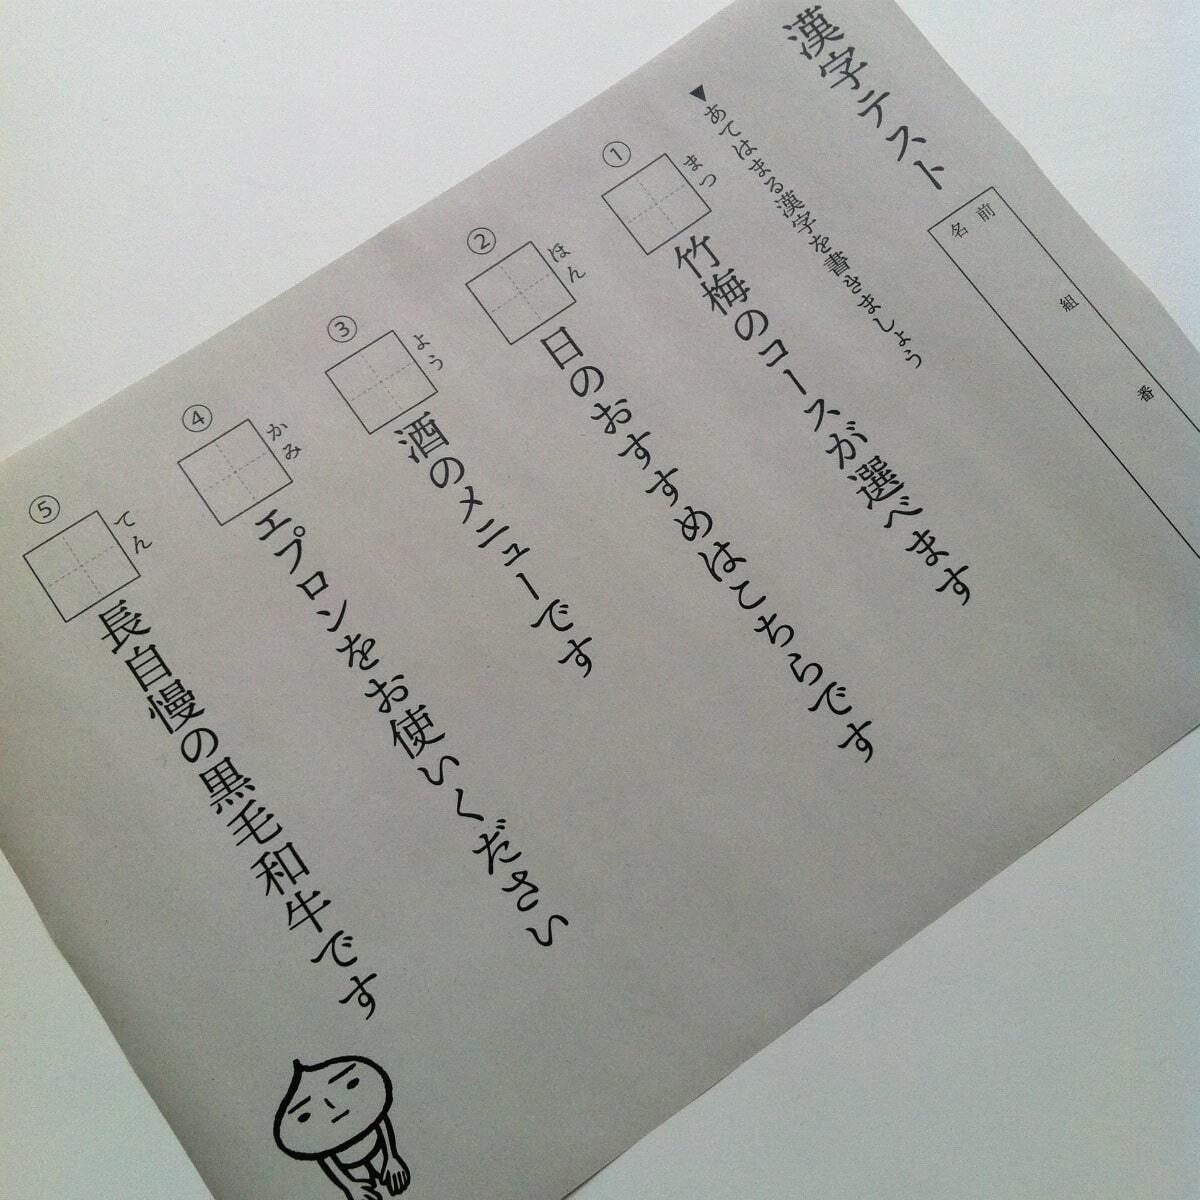 漢字テスト
名前
組
番
▼あてはまる漢字を書きましょう
①
まつ
竹梅のコースが選べます
②
ほん
日のおすすめはこちらです
③
よう
酒のメニューです
④
かみ
エプロンをお使いください
⑤
てん
長自慢の黒毛和牛です